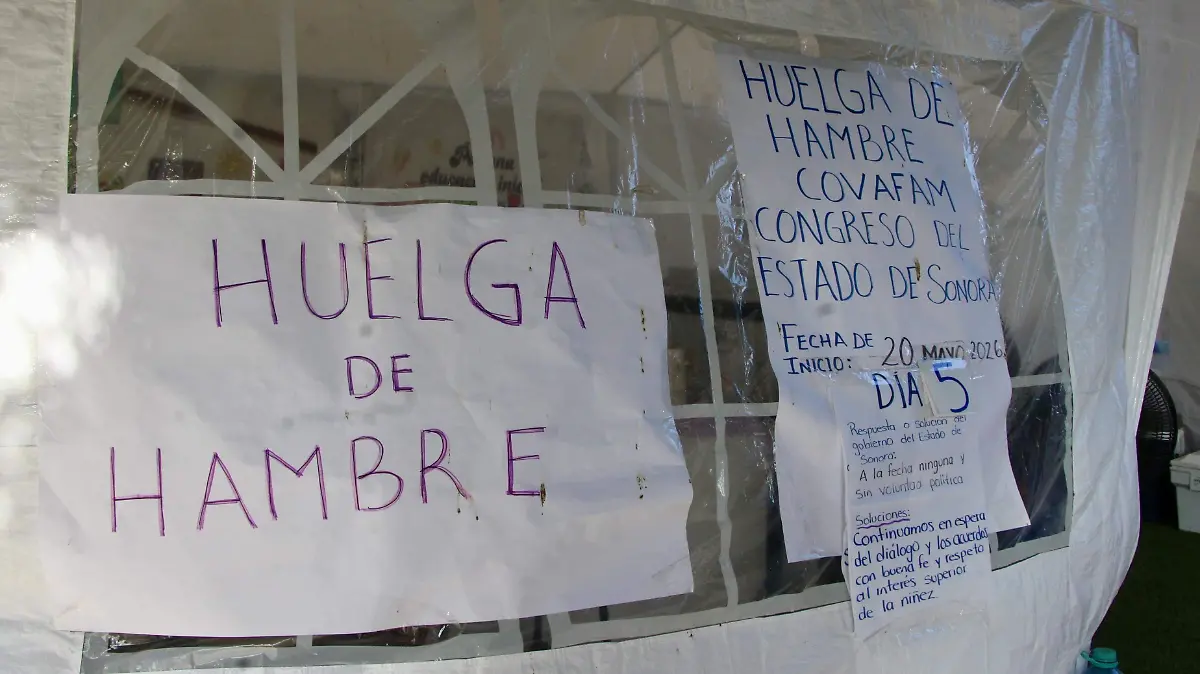 HUELGA
DE
HAMBRE
HUELGA DE
HAMBRE
COVAFAM
CONGRESO DEL
ESTADO DE SONORA
FECHA DE
INICIO: 20 MAYO 2026
DÍA 5
Respuesta o solución del
gobierno del Estado de
Sonora:
A la fecha ninguna y
sin voluntad política
Soluciones:
Continuamos en espera
del diálogo y los acuerdos
con buena fe y respeto
al interés superior
de la niñez